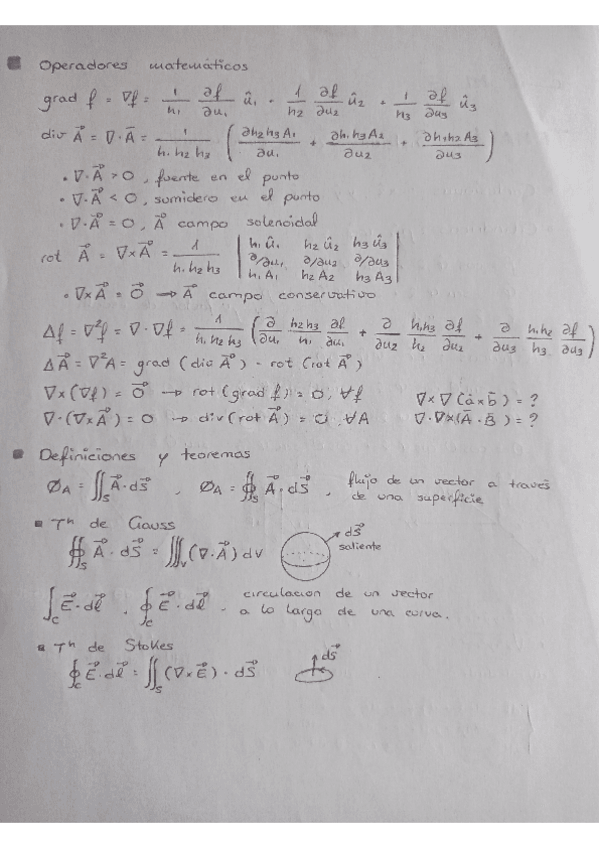 Operadores matemáticos
grad f = ∇f = 1/h₁ ∂f/∂u₁ û₁ + 1/h₂ ∂f/∂u₂ û₂ + 1/h₃ ∂f/∂u₃ û₃
div A⃗ = ∇·A⃗ = 1/(h₁ h₂ h₃) (∂h₂h₃A₁/∂u₁ + ∂h₁h₃A₂/∂u₂ + ∂h₁h₂A₃/∂u₃)
• ∇·A⃗ > 0, fuente en el punto
• ∇·A⃗ < 0, sumidero en el punto
• ∇·A⃗ = 0, A⃗ campo solenoidal
rot A⃗ = ∇×A⃗ = 1/(h₁ h₂ h₃) | h₁û₁ h₂û₂ h₃û₃ ; ∂/∂u₁ ∂/∂u₂ ∂/∂u₃ ; h₁A₁ h₂A₂ h₃A₃ |
• ∇×A⃗ = 0⃗ → A⃗ campo conservativo
Δf = ∇²f = ∇·∇f = 1/(h₁ h₂ h₃) (∂/∂u₁ h₂h₃/h₁ ∂f/∂u₁ + ∂/∂u₂ h₁h₃/h₂ ∂f/∂u₂ + ∂/∂u₃ h₁h₂/h₃ ∂f/∂u₃)
ΔA⃗ = ∇²A = grad (div A⃗) - rot (rot A⃗)
∇×(∇f) = 0⃗ → rot (grad f) = 0, ∀f ∇×∇(a×b) = ?
∇·(∇×A⃗) = 0 → div (rot A⃗) = 0, ∀A ∇·∇×(A·B) = ?
Definiciones y teoremas
Ø_A = ∬_S A⃗·dS⃗, Ø_A = ∯_S A⃗·dS⃗, flujo de un vector a través
de una superficie
Tʰ de Gauss
∯_S A⃗·dS⃗ = ∭_V (∇·A⃗) dv
dS⃗
saliente
∫_C E⃗·dl⃗, ∮_C E⃗·dl⃗, circulación de un vector
a lo largo de una curva.
Tʰ de Stokes
∮_C E⃗·dl⃗ = ∬_S (∇×E⃗)·dS⃗
dS⃗